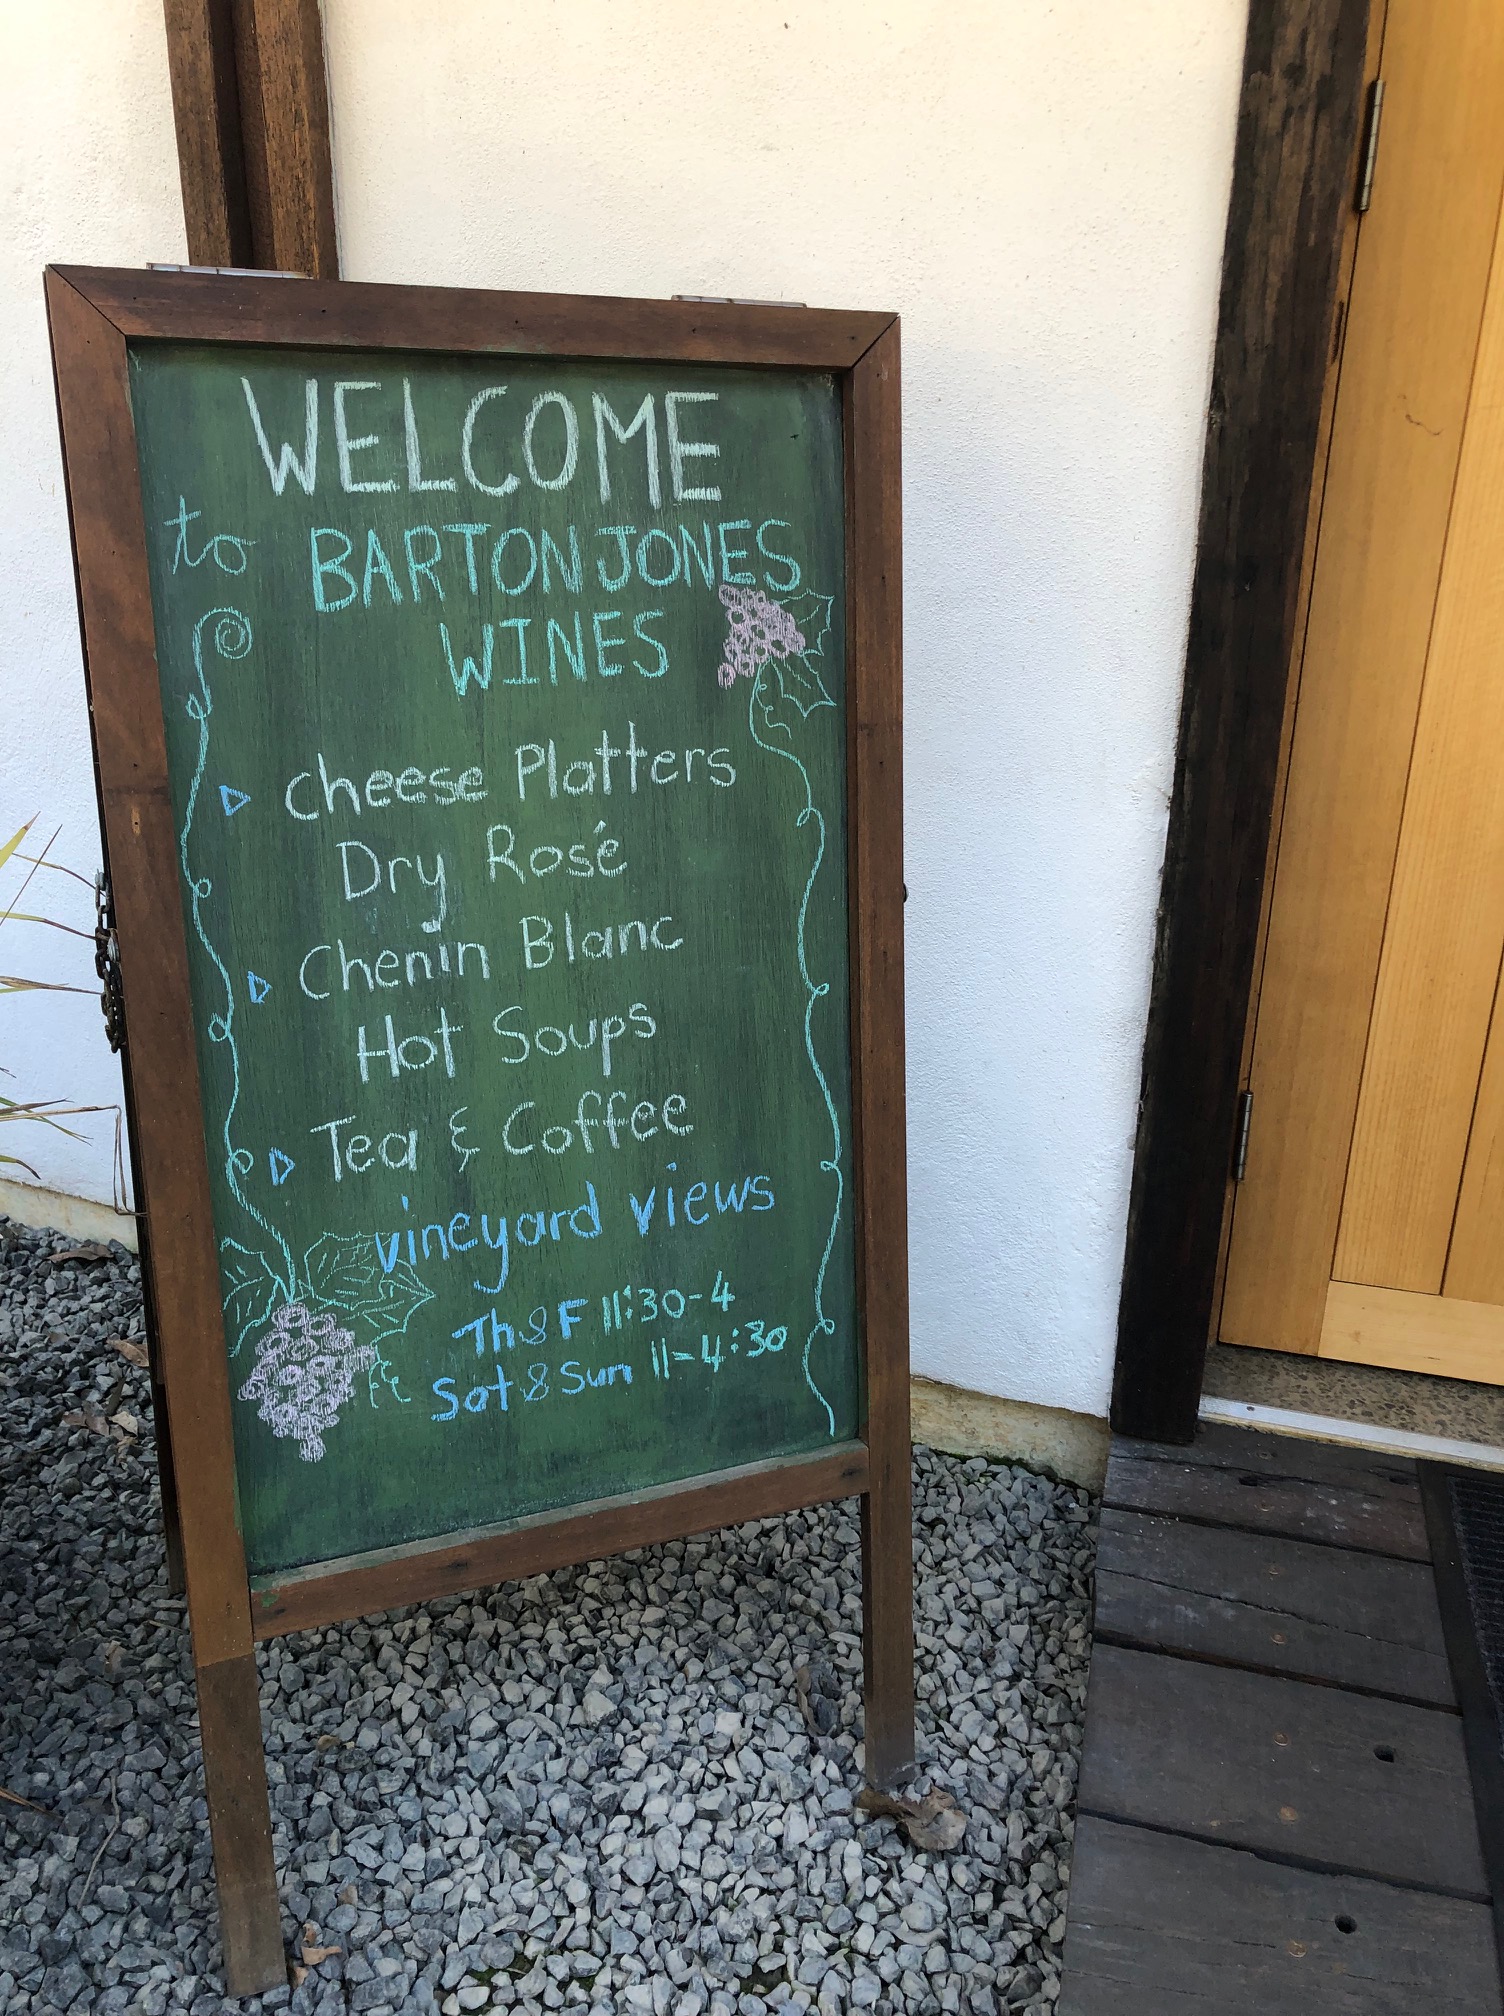 WELCOME
to BARTON JONES
WINES
Cheese Platters
Dry Rosé
Chenin Blanc
Hot Soups
Tea & Coffee
vineyard views
Th & F 11:30-4
Sat & Sun 11-4:30